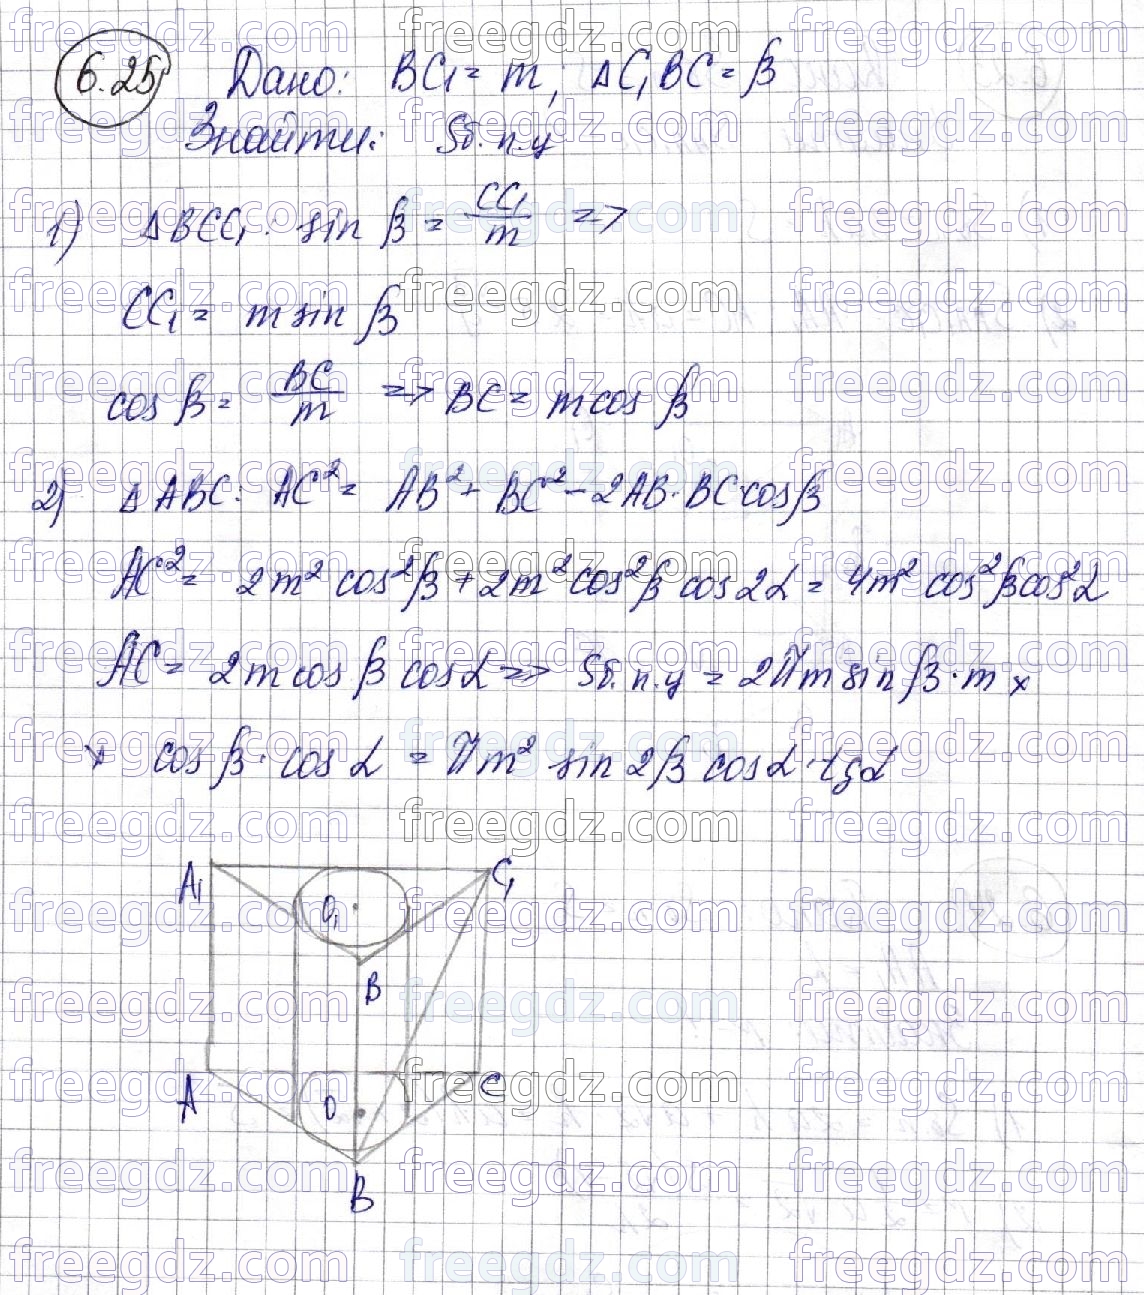 6.25 Дано: BC₁ = m; ∆C₁BC = β
Знайти: Sб.п.ц
1) ∆BCC₁: sin β = CC₁/m =>
CC₁ = m sin β
cos β = BC/m => BC = m cos β
2) ∆ABC: AC² = AB² + BC² - 2AB·BC·cosβ
AC² = 2m² cos²β + 2m² cos²β cos2α = 4m² cos²β cos²α
AC = 2m cos β cos α => Sб.п.ц = 2πm sin β · m ×
× cos β · cos α = πm² sin 2β cos α · tg α
A₁ C₁
O₁
B
A O C
B
freegdz.com